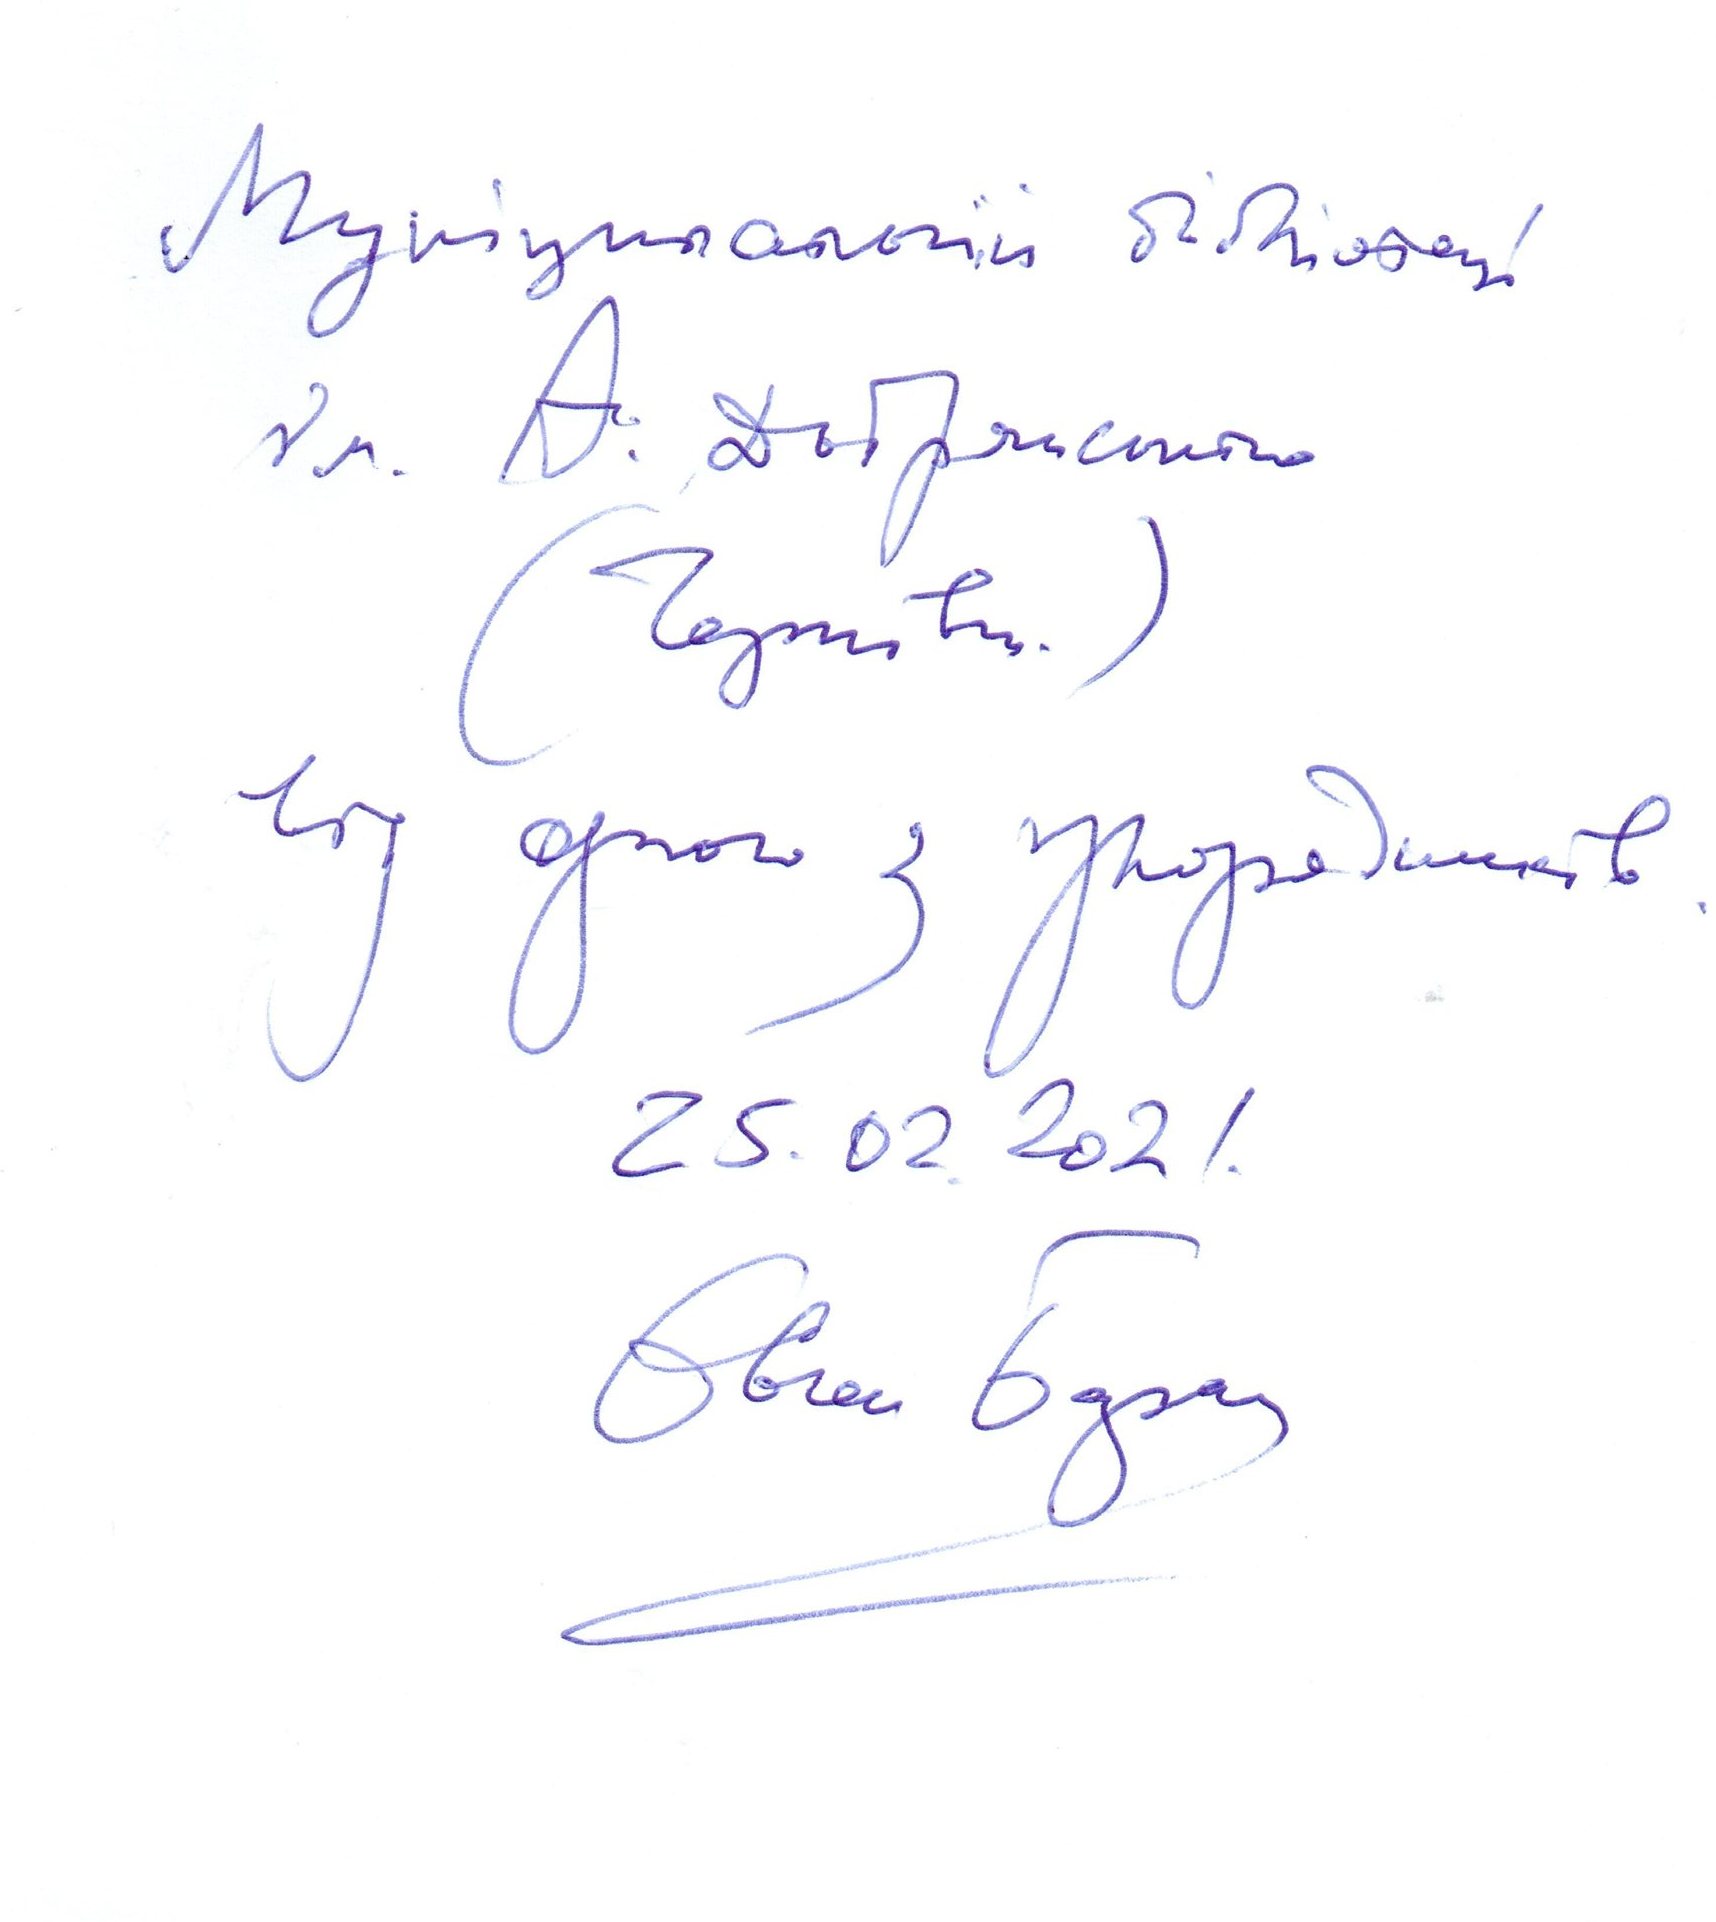 Муніципальній бібліотеці
ім. А. Добрянського
(Чернівці.)
від одного з упорядників.
25.02.2021.